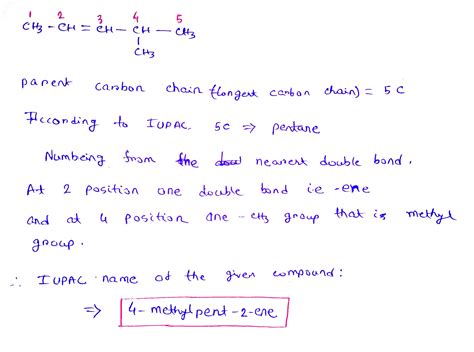 1 2 3 4 5
CH3 - CH = CH - CH - CH3
CH3
parent carbon chain (longest carbon chain) = 5 C
According to IUPAC 5C ⇒ pentane
Numbeing from the nearest double bond.
At 2 position one double bond i.e -ene
and at 4 position one -CH3 group that is methyl
group.
∴ IUPAC name of the given compound:
⇒ 4-methylpent-2-ene